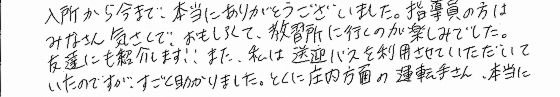 入所から今まで、本当にありがとうございました。指導員の方は
みなさん気さくで、おもしろくて、教習所に行くのが楽しみでした。
友達にも紹介します!! また、私は送迎バスを利用させていただいて
いたのですが、すごく助かりました。とくに庄内方面の運転手さん、本当に